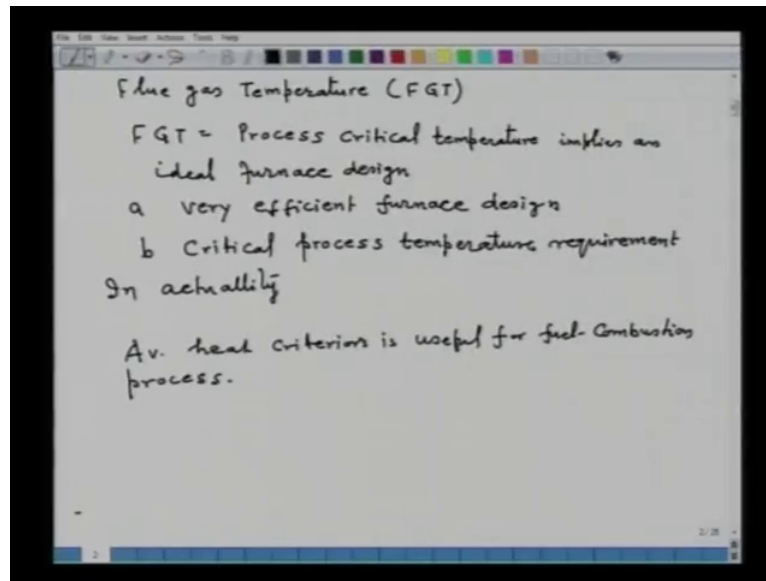 File Edit View Insert Actions Tools Help
Flue gas Temperature (FGT)
FGT = Process critical temperature implies an
ideal furnace design
a very efficient furnace design
b Critical process temperature requirement
In actuallity
Av. heat criterion is useful for fuel-Combustion
process.
2/28
2